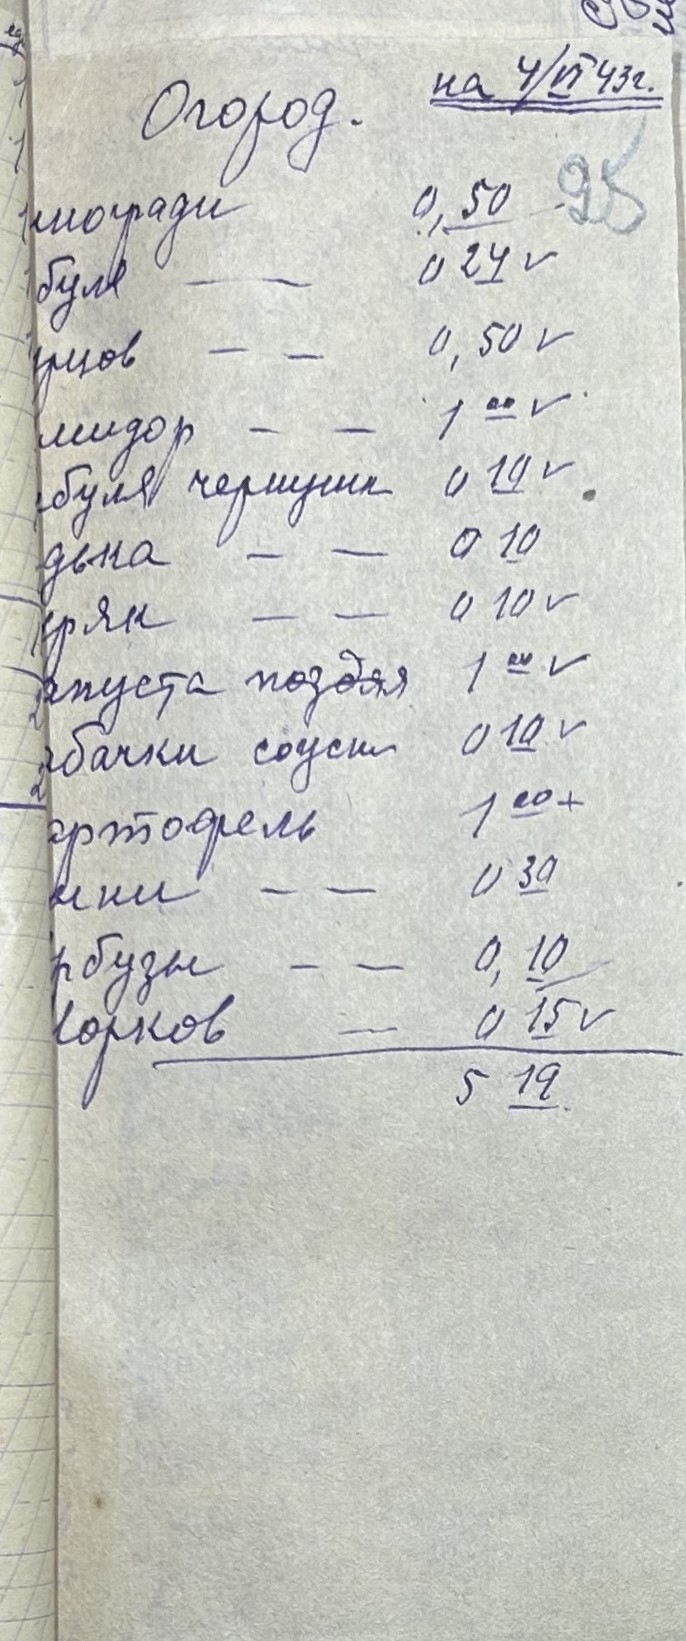 на 4/VI 43 г.
Огород.
95
иногради 0,50
буля — — 0 24 v
рцов — — 0,50 v
мидор — — 1 00 v
буля чернушк 0 10 v
дька — — 0 10
ряк — — 0 10 v
пуста поздяя 1 00 v
бачки соусн 0 10 v
ртофель 1 00 +
ини — — 0 30
рбузы — — 0,10
орков — 0 15 v
5 19